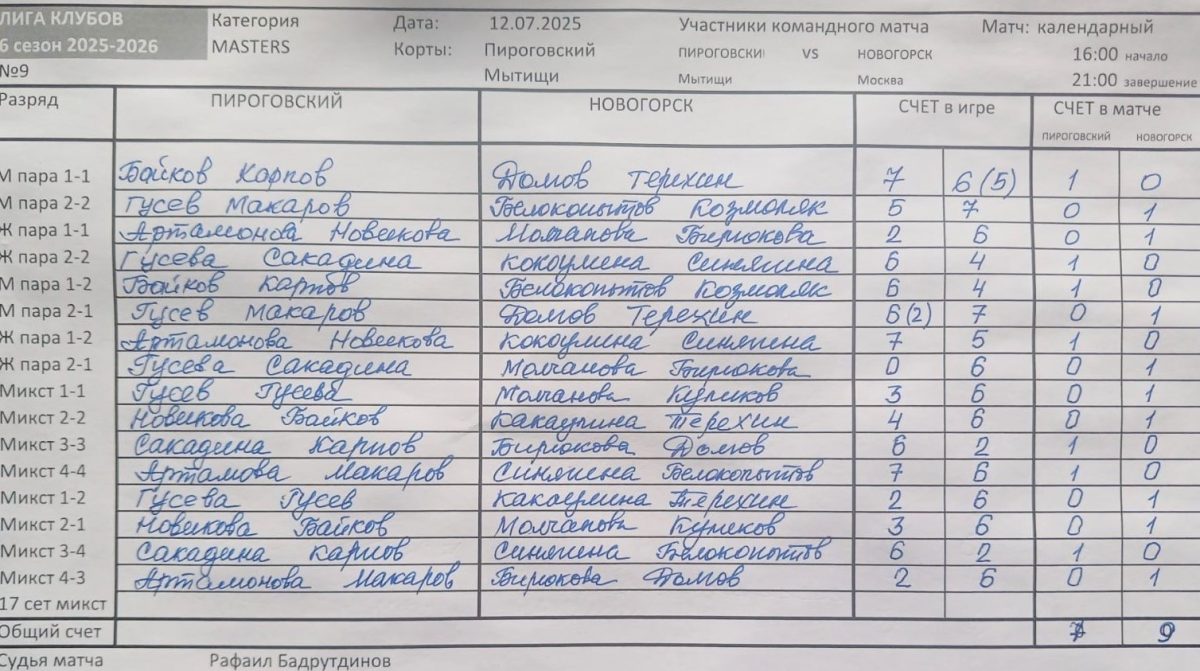 ЛИГА КЛУБОВ Категория Дата: 12.07.2025 Участники командного матча Матч: календарный
6 сезон 2025-2026 MASTERS Корты: Пироговский ПИРОГОВСКИ VS НОВОГОРСК 16:00 начало
№9 Мытищи Мытищи Москва 21:00 завершение
Разряд ПИРОГОВСКИЙ НОВОГОРСК СЧЕТ в игре СЧЕТ в матче
ПИРОГОВСКИЙ НОВОГОРСК
М пара 1-1 Байков Карпов Домов Терехин 7 6(5) 1 0
М пара 2-2 Гусев Макаров Белокопытов Козмопяк 5 7 0 1
Ж пара 1-1 Артамонова Новикова Молчанова Бирюкова 2 6 0 1
Ж пара 2-2 Гусева Сакадина Кокоулина Синягина 6 4 1 0
М пара 1-2 Байков Карпов Белокопытов Козмопяк 6 4 1 0
М пара 2-1 Гусев Макаров Домов Терехин 6(2) 7 0 1
Ж пара 1-2 Артамонова Новикова Кокоулина Синягина 7 5 1 0
Ж пара 2-1 Гусева Сакадина Молчанова Бирюкова 0 6 0 1
Микст 1-1 Гусев Гусева Молчанова Куликов 3 6 0 1
Микст 2-2 Новикова Байков Какаулина Терехин 4 6 0 1
Микст 3-3 Сакадина Карпов Бирюкова Домов 6 2 1 0
Микст 4-4 Артамова Макаров Синягина Белокопытов 7 6 1 0
Микст 1-2 Гусева Гусев Какоулина Терехин 2 6 0 1
Микст 2-1 Новикова Байков Молчанова Куликов 3 6 0 1
Микст 3-4 Сакадина Карпов Синягина Белокопытов 6 2 1 0
Микст 4-3 Артамонова Макаров Бирюкова Домов 2 6 0 1
17 сет микст
Общий счет 7 9
Судья матча Рафаил Бадрутдинов